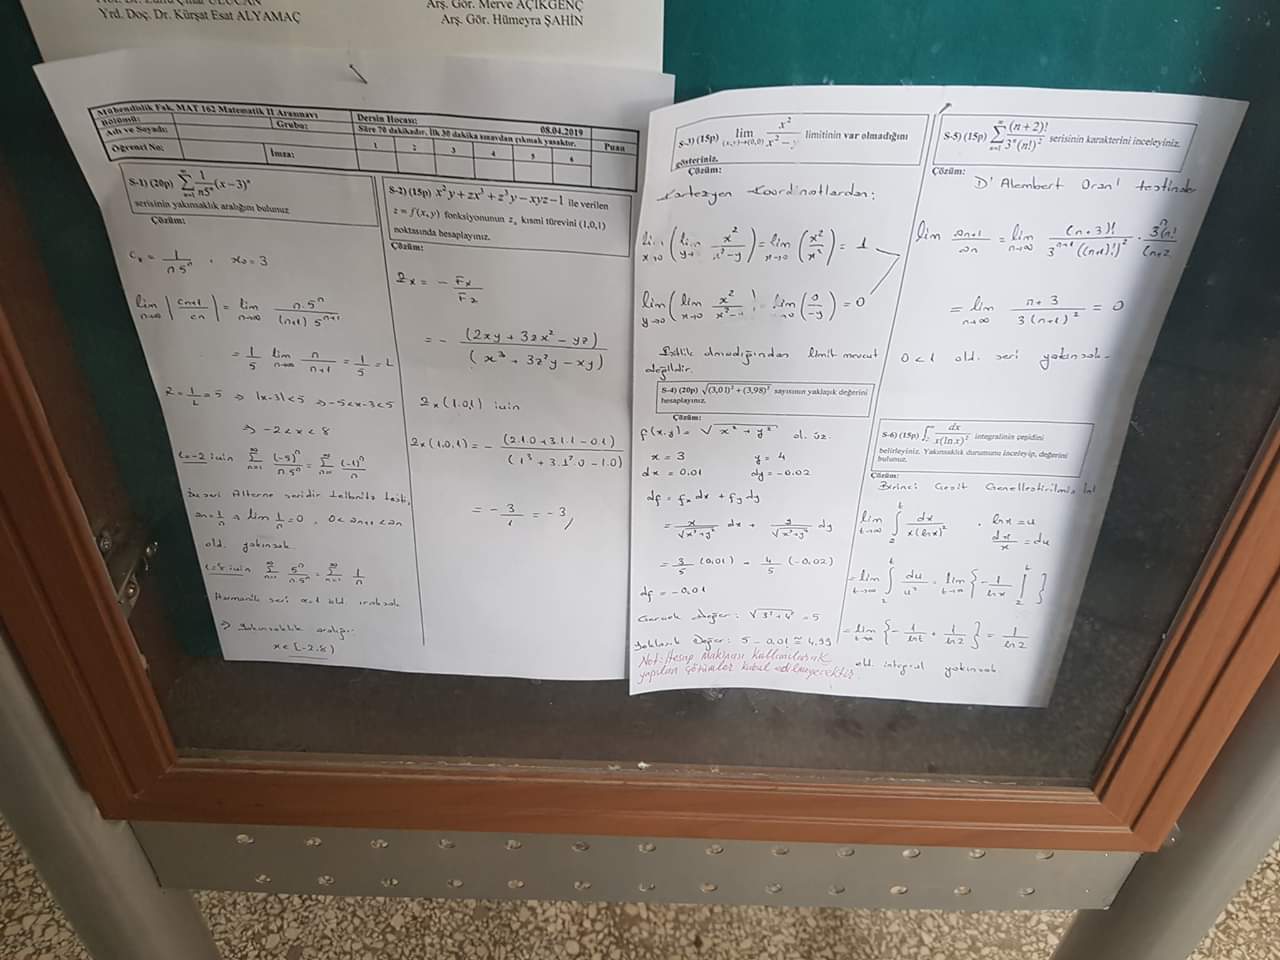 Yrd. Doç. Dr. Kürşat Esat ALYAMAÇ
Arş. Gör. Merve AÇIKGENÇ
Arş. Gör. Hümeyra ŞAHİN
Mühendislik Fak. MAT 162 Matematik II Arasınavı
Bölümü:
Grubu:
Adı ve Soyadı:
Öğrenci No:
İmza:
Dersin Hocası:
08.04.2019
Süre 70 dakikadır. İlk 30 dakika sınavdan çıkmak yasaktır.
1 2 3 4 5 6 Puan
S-1) (20p) ∑_{n=1}^{∞} 1/(n5^n) (x−3)^n
serisinin yakınsaklık aralığını bulunuz
Çözüm:
c_n = 1/(n.5^n) , x₀ = 3
lim_{n→∞} |c_{n+1}/c_n| = lim_{n→∞} n.5^n/((n+1) 5^{n+1})
= 1/5 lim_{n→∞} n/(n+1) = 1/5 = L
R = 1/L = 5 ⇒ |x-3| < 5 ⇒ -5 < x-3 < 5
⇒ -2 < x < 8
x=-2 için ∑_{n=1}^{∞} (-5)^n/(n.5^n) = ∑_{n=1}^{∞} (-1)^n/n
Bu seri Alterne seridir Leibnitz testi,
a_n = 1/n ⇒ lim 1/n = 0 , 0 < a_{n+1} < a_n
old. yakınsak.
x=8 için ∑_{n=1}^{∞} 5^n/(n.5^n) = ∑_{n=1}^{∞} 1/n
Harmonik seri α=1 old. ıraksak
⇒ Yakınsaklık aralığı
x ∈ [-2,8)
S-2) (15p) x²y + zx³ + z³y − xyz − 1 ile verilen
z = f(x,y) fonksiyonunun z_x kısmi türevini (1,0,1)
noktasında hesaplayınız.
Çözüm:
z_x = - F_x/F_z
= - (2xy + 3zx² - yz)/(x³ + 3z²y - xy)
z_x(1,0,1) için
z_x(1,0,1) = - (2.1.0 + 3.1.1 - 0.1)/(1³ + 3.1².0 - 1.0)
= - 3/1 = -3//
S-3) (15p) lim_{(x,y)→(0,0)} x²/(x²−y) limitinin var olmadığını
gösteriniz.
Çözüm:
Kartezyen Koordinatlardan;
lim_{x→0} (lim_{y→0} x²/(x²-y)) = lim_{x→0} (x²/x²) = 1
lim_{y→0} (lim_{x→0} x²/(x²-y)) = lim_{y→0} (0/-y) = 0
Eşitlik olmadığından limit mevcut
değildir.
S-4) (20p) √((3,01)² + (3,98)²) sayısının yaklaşık değerini
hesaplayınız.
Çözüm:
f(x,y) = √(x² + y²) ol. üz.
x = 3 y = 4
dx = 0.01 dy = -0.02
df = f_x dx + f_y dy
= x/√(x²+y²) dx + y/√(x²+y²) dy
= 3/5 (0,01) + 4/5 (-0,02)
df = -0,01
Gerçek Değer: √(3²+4²) = 5
Yaklaşık Değer: 5 - 0,01 ≅ 4,99
Not: Hesap makinası kullanılarak
yapılan çözümler kabul edilmeyecektir.
S-5) (15p) ∑_{n=1}^{∞} (n+2)!/(3^n(n!)²) serisinin karakterini inceleyiniz.
Çözüm:
D'Alembert Oran testinden
lim a_{n+1}/a_n = lim_{n→∞} (n+3)!/(3^{n+1}((n+1)!)²) . 3^n(n!/(n+2
= lim_{n→∞} (n+3)/(3(n+1)²) = 0
0 < 1 old. seri yakınsak.
S-6) (15p) ∫ dx/(x(ln x)²) integralinin çeşidini
belirleyiniz. Yakınsaklık durumunu inceleyip, değerini
bulunuz.
Çözüm:
Birinci Çeşit Genelleştirilmiş İnt
lim_{t→∞} ∫_2^t dx/(x(lnx)²) , lnx = u
dx/x = du
= lim_{t→∞} ∫_2^t du/u² = lim_{t→∞} {-1/lnx |_2^t}
= lim_{t→∞} {-1/lnt + 1/ln2} = 1/ln2
old. integral yakınsak.